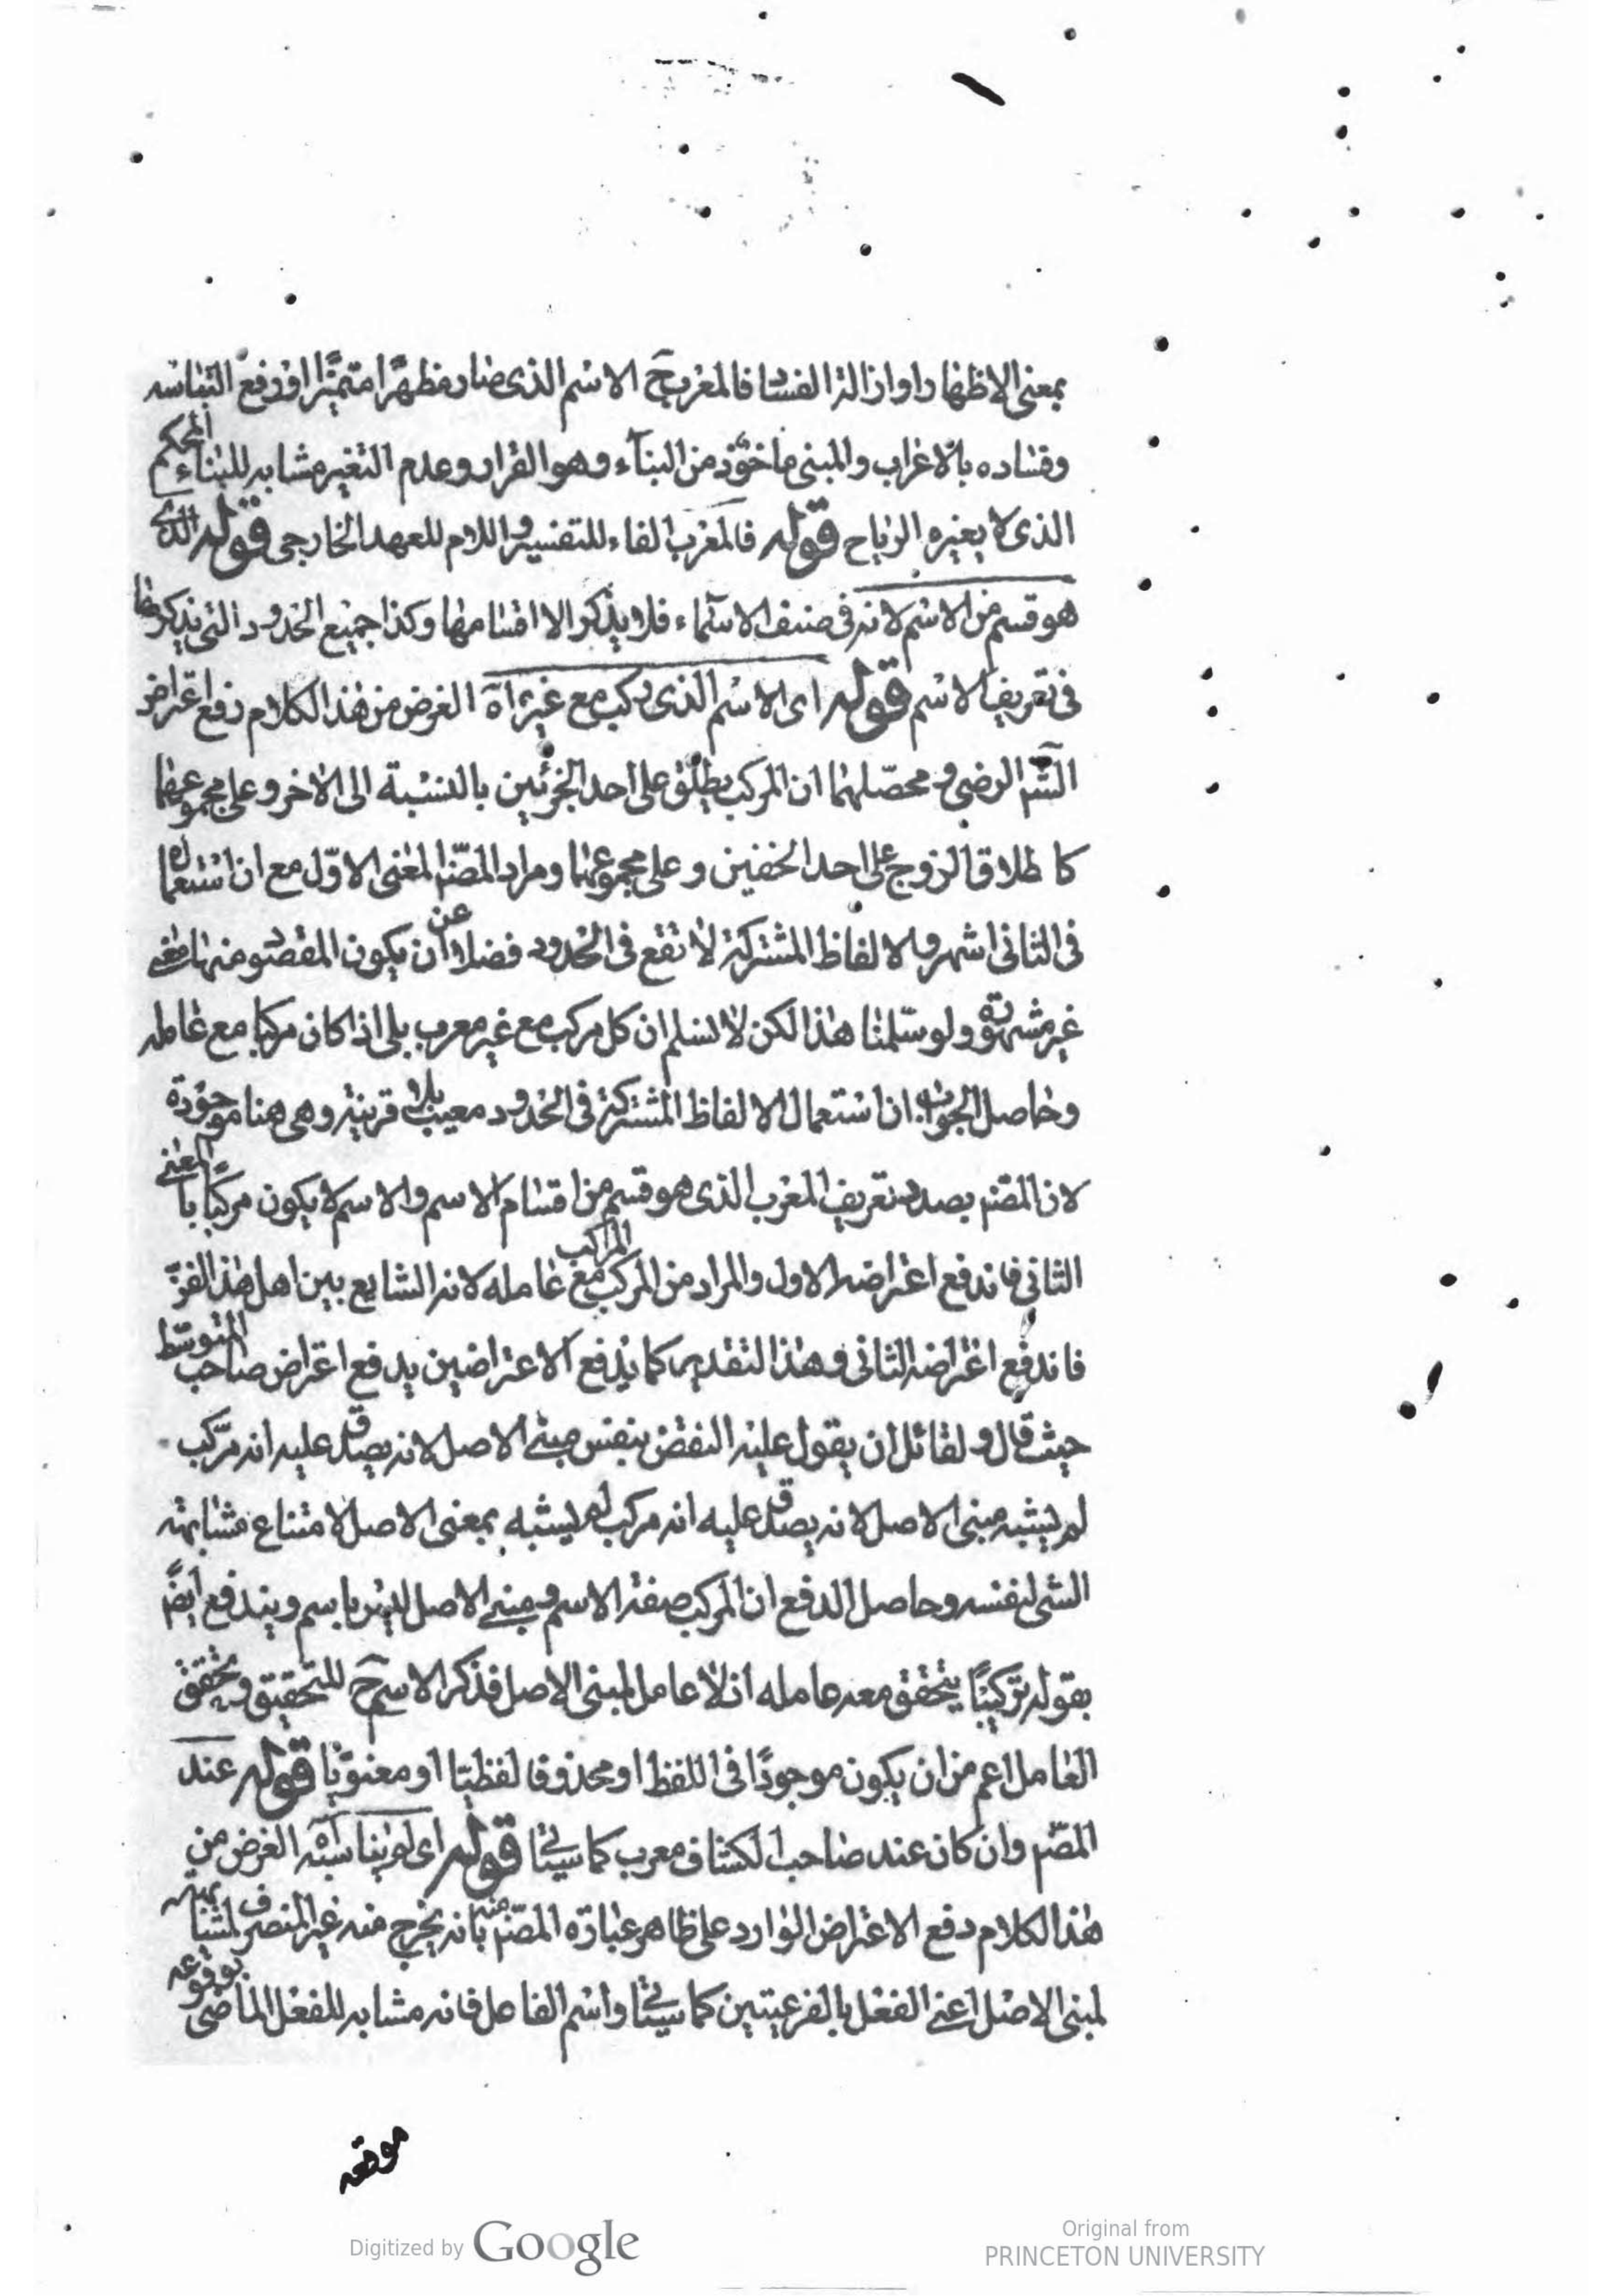 بمعنى الاظهار او ازالة الفساد فالمعرب ح الاسم الذى صار مظهرًا متميّزًا او رفع التباسه
وفساده بالاعراب والمبنى ماخوذ من البناء وهو القرار وعدم التغير مشابه للبناء المحكم
الذى لا يغيره الرياح قوله فالمعرب الفاء للتفسير واللام للعهد الخارجى قوله الذى
هو قسم من الاسم لانه فى صنف الاسماء فلا يذكر الا اقسامها وكذا جميع الحدود التى يذكرها
فى تعريف الاسم قوله اى الاسم الذى ركب مع غيره آه الغرض من هذا الكلام دفع اعتراض
الشم الرضى ومحصّلهما ان المركب يطلق على احد الجزئين بالنسبة الى الاخر وعلى مجموعهما
كاطلاق الزوج على احد الخفين وعلى مجموعهما ومراد المصنّ المعنى الاوّل مع ان استعماله
فى الثانى اشهر والالفاظ المشتركة لا تقع فى الحدود فضلا عن ان يكون المقصود منها معنى
غير مشهورة ولو سلّمنا هذا لكن لا نسلم ان كل مركب مع غير معرب بلى اذا كان مركبا مع عامله
وحاصل الجواب ان استعمال الالفاظ المشتركة فى الحدود معيب بلا قرينة وهى هنا موجودة
لان المصنّ بصدد تعريف المعرب الذى هو قسم من اقسام الاسم والاسم لا يكون مركبًا بالمعنى
الثانى فاندفع اعتراضه الاول والمراد من المركب المركب مع عامله لانه الشايع بين اهل هذا الفنّ
فاندفع اعتراضه الثانى وهذا التقدير كما يدفع الاعتراضين يدفع اعتراض صاحب المتوسّط
حيث قال ولقائل ان يقول عليه النقض بنفس مبنى الاصل لانه يصدق عليه انه مركّب
لم يشبه مبنى الاصل لانه يصدق عليه انه مركب لم يشبه بمعنى الاصل لامتناع مشابهة
الشئ لنفسه وحاصل الدفع ان المركب صفة الاسم ومبنى الاصل ليس باسم ويندفع ايضً
بقوله تركيبًا يتحقق معه عامله اذ لا عامل لمبنى الاصل فذكر الاسم ح للتحقيق وتحقق
العامل اعم من ان يكون موجودًا فى اللفظ او محذوفا لفظيّا او معنويّا قوله عند
المصّم وان كان عند صاحب الكشاف معرب كما سيجئ قوله اى لم يناسبه الغرض من
هذا الكلام دفع الاعتراض الوارد على ظاهر عبارة المصنّ منه بانه يخرج منه غير المنصرف لمشابهته
لمبنى الاصل اعنى الفعل بالفرعيتين كما سيجئ واسم الفاعل فانه مشابه للفعل الماضى بوقوعه
موقعه
Digitized by Google
Original from
PRINCETON UNIVERSITY